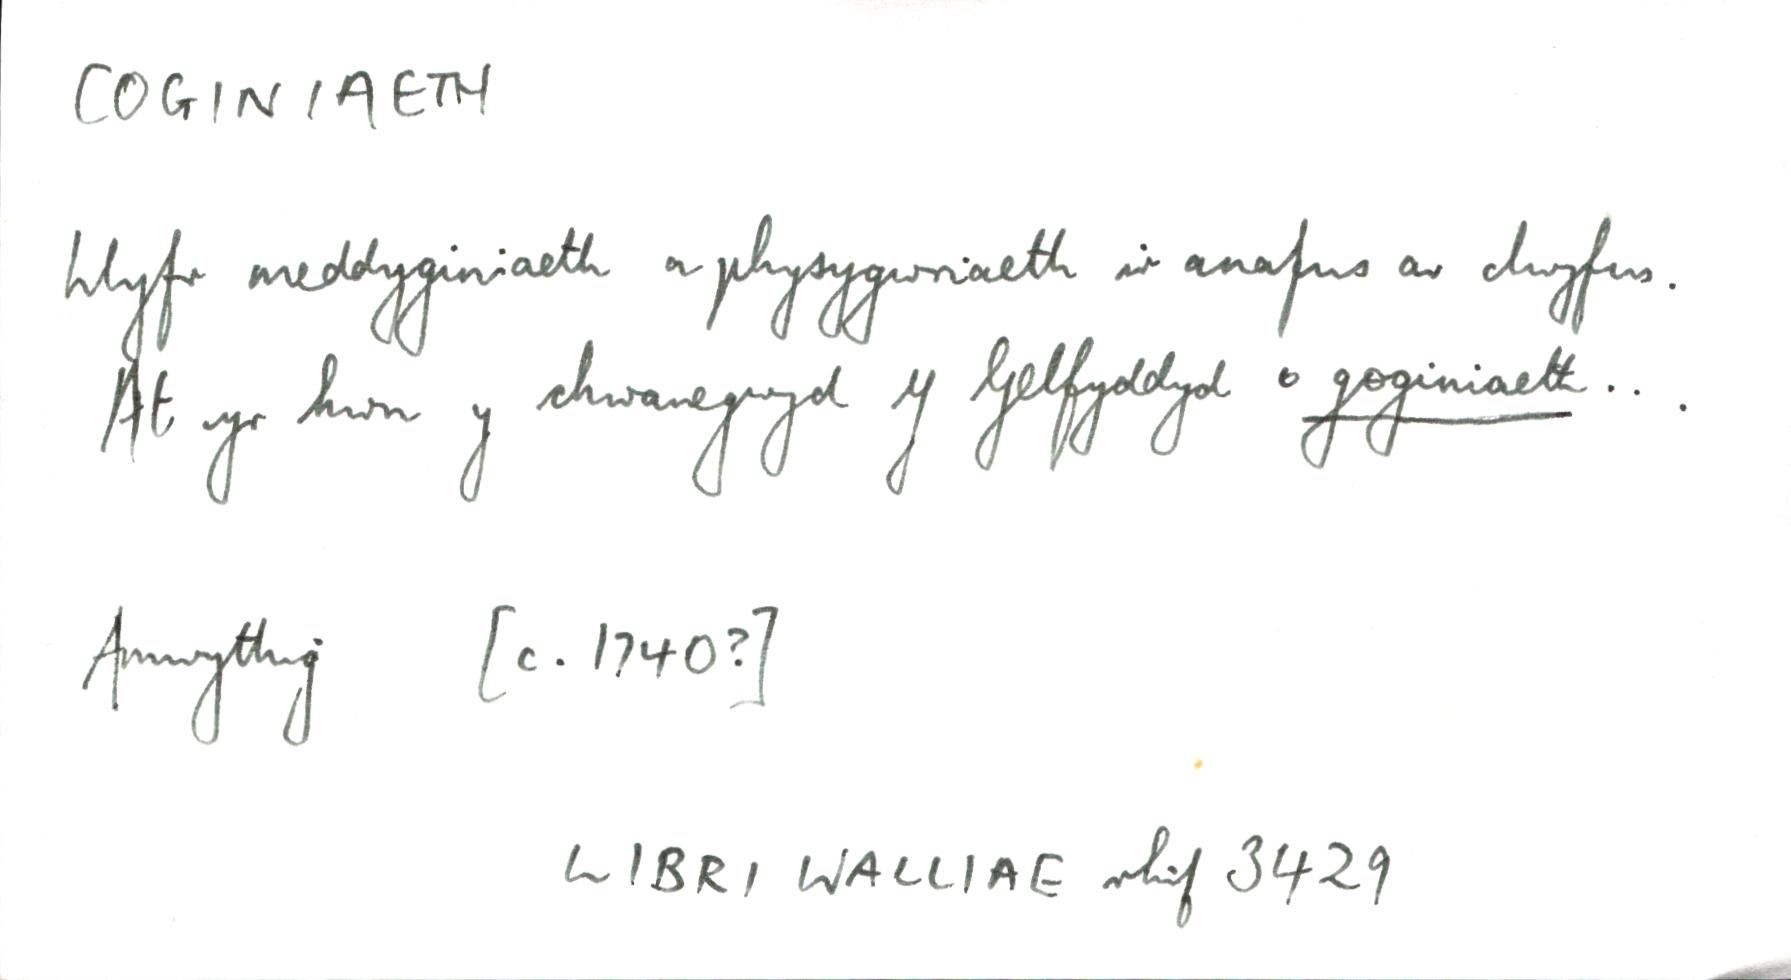 COGINIAETH
Llyfr meddyginiaeth a physygwriaeth ir anafus ar clwyfus.
At yr hwn y chwanegwyd y Gelfyddyd o goginiaeth...
Amwythig [c. 1740?]
LIBRI WALLIAE rhif 3429